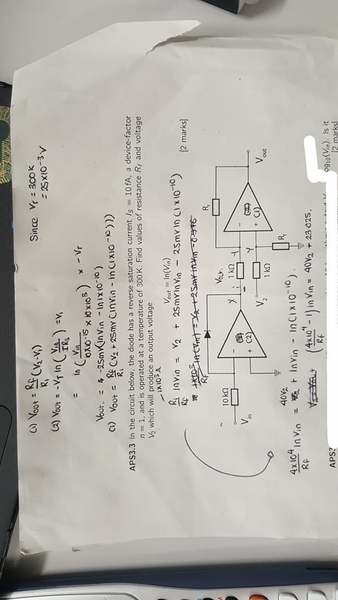 Since VT = 300K
= 25 x10^-3 V
(1) Vout = Rf/R1 (V2-V1)
(2) Vout = -VT ln (Vin/IsR1) = V1
= ln (Vin/10x10^-15 x 10x10^3) x -VT
Vout = -25mV(lnVin - ln1x10^-10)
(1) Vout = Rf/R1 (V2 + 25mV (lnVin - ln(1x10^-10)))
APS3.3 In the circuit below, the diode has a reverse saturation current IS = 10 fA, a device-factor
n = 1, and is operated at a temperature of 300 K. Find values of resistance Rf, and voltage
V2 which will produce an output voltage
Vout = ln(Vin)
[2 marks]
R1/Rf lnVin = V2 + 25mV lnVin - 25mV ln(1x10^-10)
Vin
10 kΩ
(2)
Vout
1 kΩ
V2
1 kΩ
Rf
(1)
Rf
Vout
4x10^4/Rf lnVin = 40V2 + lnVin ln(1x10^-10)
(4x10^4/Rf -1) lnVin = 40V2 + 23.025.
(Vin). Is it
[2 marks]